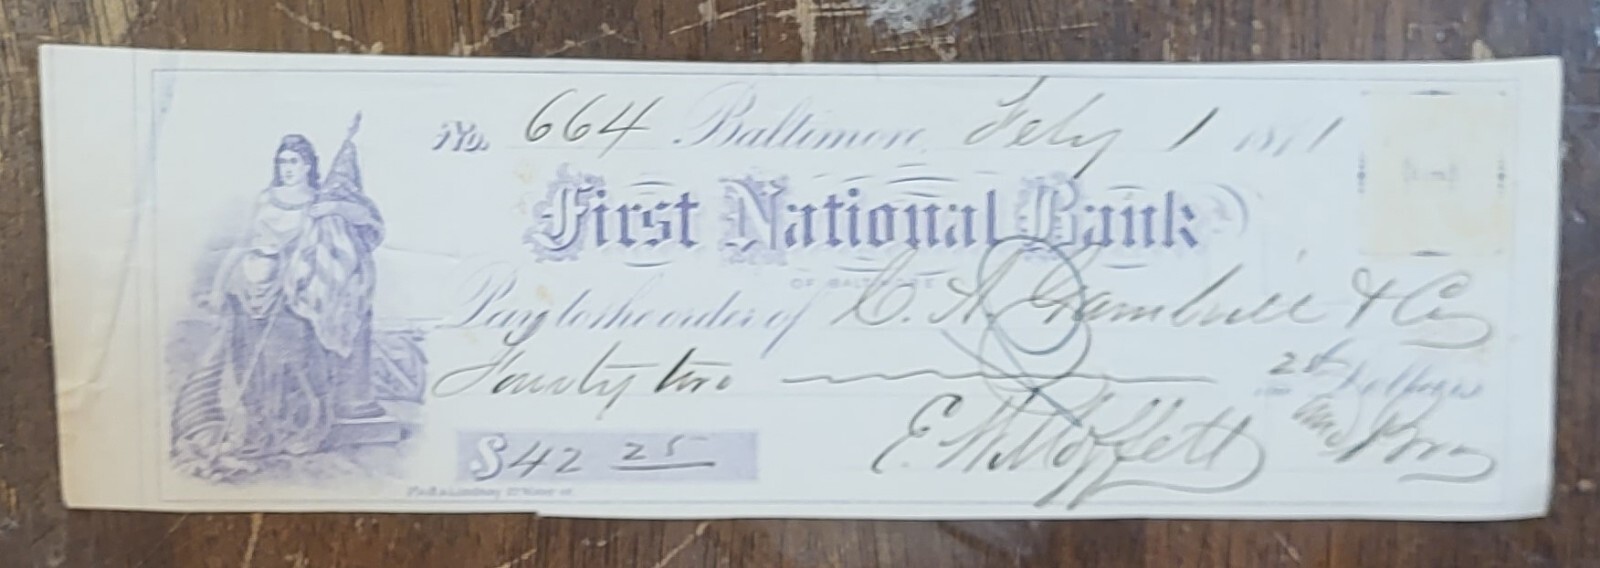 No. 664 Baltimore, Feby 1 1871
First National Bank
OF BALTIMORE
Pay to the order of C. A. Gambrill & Co
Fourty two 25 Dollars
$42 25
E. W. Moffett and Bro